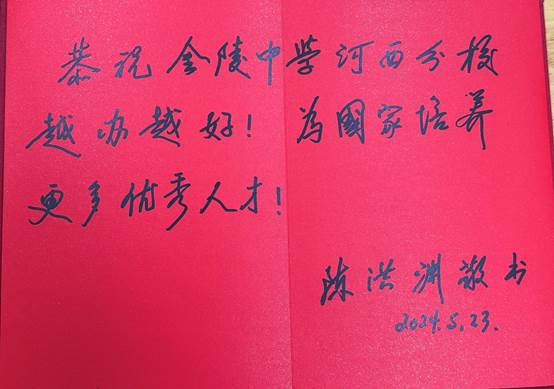 恭祝金陵中学河西分校
越办越好！为國家培养
更多优秀人才！
陈洪渊敬书
2024.5.23.